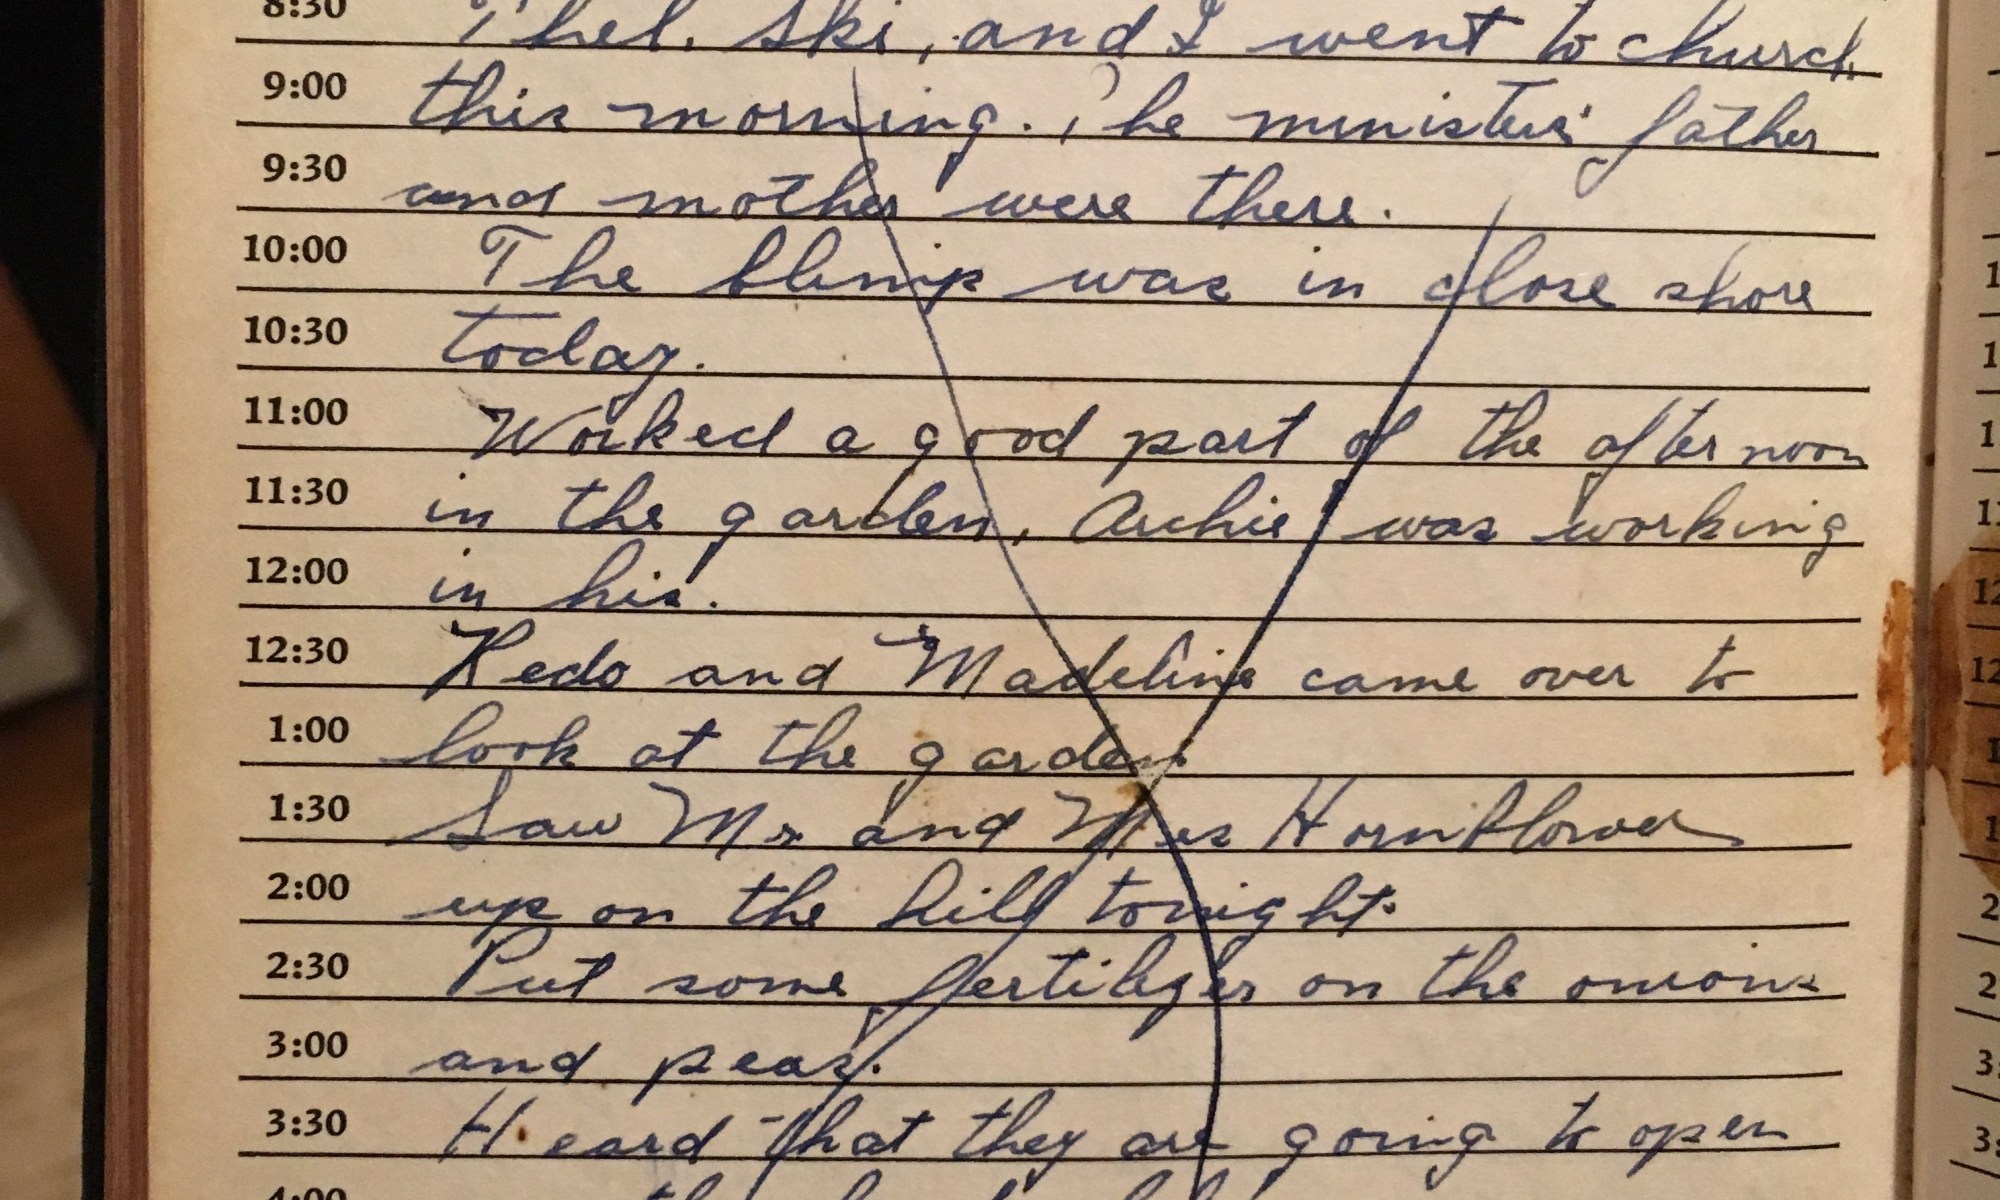 8:30 Thel, Ski, and I went to church
9:00 this morning. The ministers' father
9:30 and mother were there.
10:00 The blimp was in close shore
10:30 today.
11:00 Worked a good part of the afternoon
11:30 in the garden, Archie was working
12:00 in his.
12:30 and Madeline came over to
1:00 look at the garden.
1:30 Saw Mr and Mrs
2:00 up on the hill tonight.
2:30 Put some fertilizer on the onions
3:00 and peas.
3:30 Heard that they are going to open
4:00